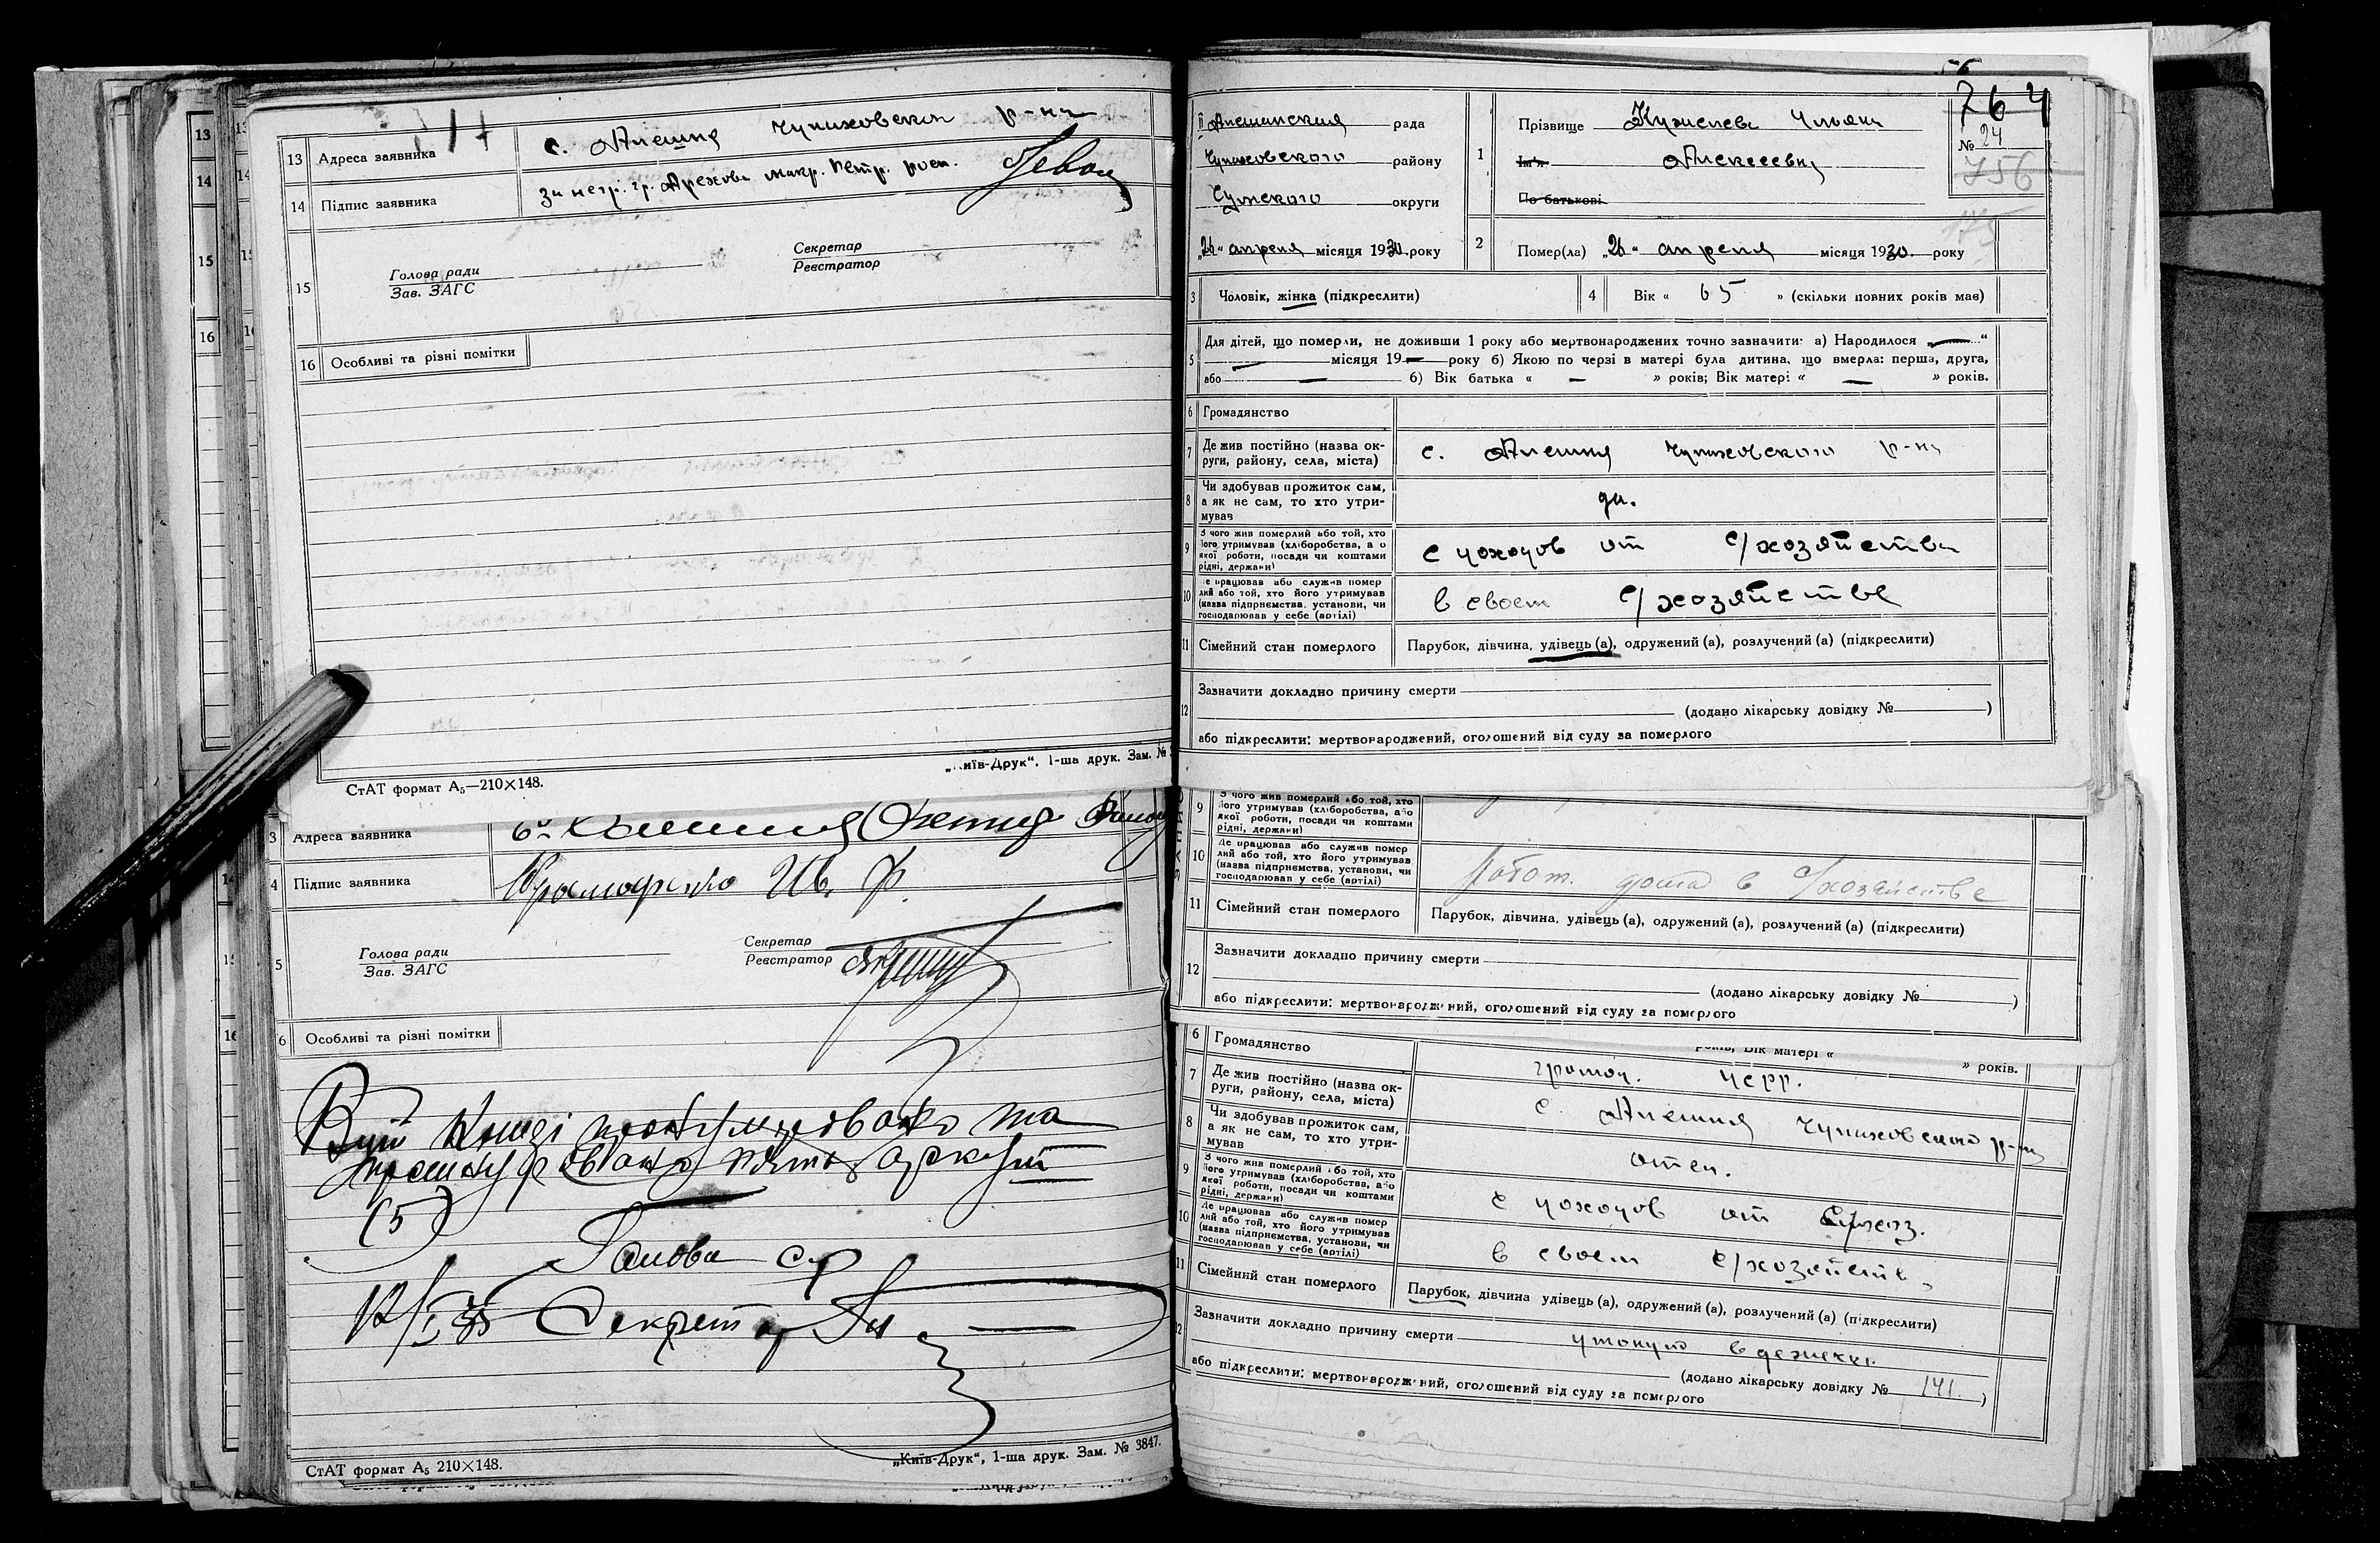 13 Адреса заявника с. Алешня Чупаховского р-на
14 Підпис заявника за негр. гр. Орехова Макр. Петр. расп.
15 Голова ради
Зав. ЗАГС
Секретар
Реєстратор
16 Особливі та різні помітки
СтАТ формат А₅—210×148.
иїв-Друк", 1-ша друк. Зам. №
Адреса заявника
4 Підпис заявника Ив. Ф.
5 Голова ради
Зав. ЗАГС
Секретар
Реєстратор
6 Особливі та різні помітки
В цій Книзі пронумеровано та
прошнуровано п'ять аркуш
(5)
Голова с/р
Секретар
СтАТ формат А₅ 210×148.
„Київ-Друк", 1-ша друк. Зам. № 3847.
764
№ 24
756
Алешанская рада
Чупаховского району
Сумского округи
„26" апреля місяця 1930 року
1 Прізвище Ульяна
Ім'я Алексеевна
По батькові
2 Помер(ла) „26" апреля місяця 1930 року
3 Чоловік, жінка (підкреслити)
4 Вік « 65 » (скільки повних років мав)
5 Для дітей, що померли, не доживши 1 року або мертвонароджених точно зазначити: а) Народилося — "
— місяця 19— року б) Якою по черзі в матері була дитина, що вмерла: перша, друга,
або — б) Вік батька « — » років; Вік матері « — » років.
6 Громадянство
7 Де жив постійно (назва округи, району, села, міста) с. Алешня Чупаховского р-на
8 Чи здобував прожиток сам, а як не сам, то хто утримував да.
9 З чого жив померлий або той, хто його утримував (хліборобства, або якої роботи, посади чи коштами рідні, держави) с доходов от с/хозяйства
10 Де працював або служив померлий або той, хто його утримував (назва підприємства, установи, чи господарював у себе (артілі) в своем с/хозяйстве
11 Сімейний стан померлого Парубок, дівчина, удівець (а), одружений (а), розлучений (а) (підкреслити)
12 Зазначити докладно причину смерти
(додано лікарську довідку № )
або підкреслити: мертвонароджений, оголошений від суду за померлого
9 З чого жив померлий або той, хто його утримував (хліборобства, або якої роботи, посади чи коштами рідні, держави)
10 Де працював або служив померлий або той, хто його утримував (назва підприємства, установи, чи господарював у себе (артілі) Работ. дома в с/хозяйстве
11 Сімейний стан померлого Парубок, дівчина, удівець (а), одружений (а), розлучений (а) (підкреслити)
12 Зазначити докладно причину смерти
(додано лікарську довідку № )
або підкреслити: мертвонароджений, оголошений від суду за померлого
років; Вік матері « » років.
6 Громадянство
7 Де жив постійно (назва округи, району, села, міста) с. Алешня Чупаховского р-на
8 Чи здобував прожиток сам, а як не сам, то хто утримував отец.
9 З чого жив померлий або той, хто його утримував (хліборобства, або якої роботи, посади чи коштами рідні, держави) с доходов от с/хоз.
10 Де працював або служив померлий або той, хто його утримував (назва підприємства, установи, чи господарював у себе (артілі) в своем с/хозяйств
11 Сімейний стан померлого Парубок, дівчина удівець (а), одружений (а), розлучений (а) (підкреслити)
12 Зазначити докладно причину смерти утонул
(додано лікарську довідку № 141. )
або підкреслити: мертвонароджений, оголошений від суду за померлого